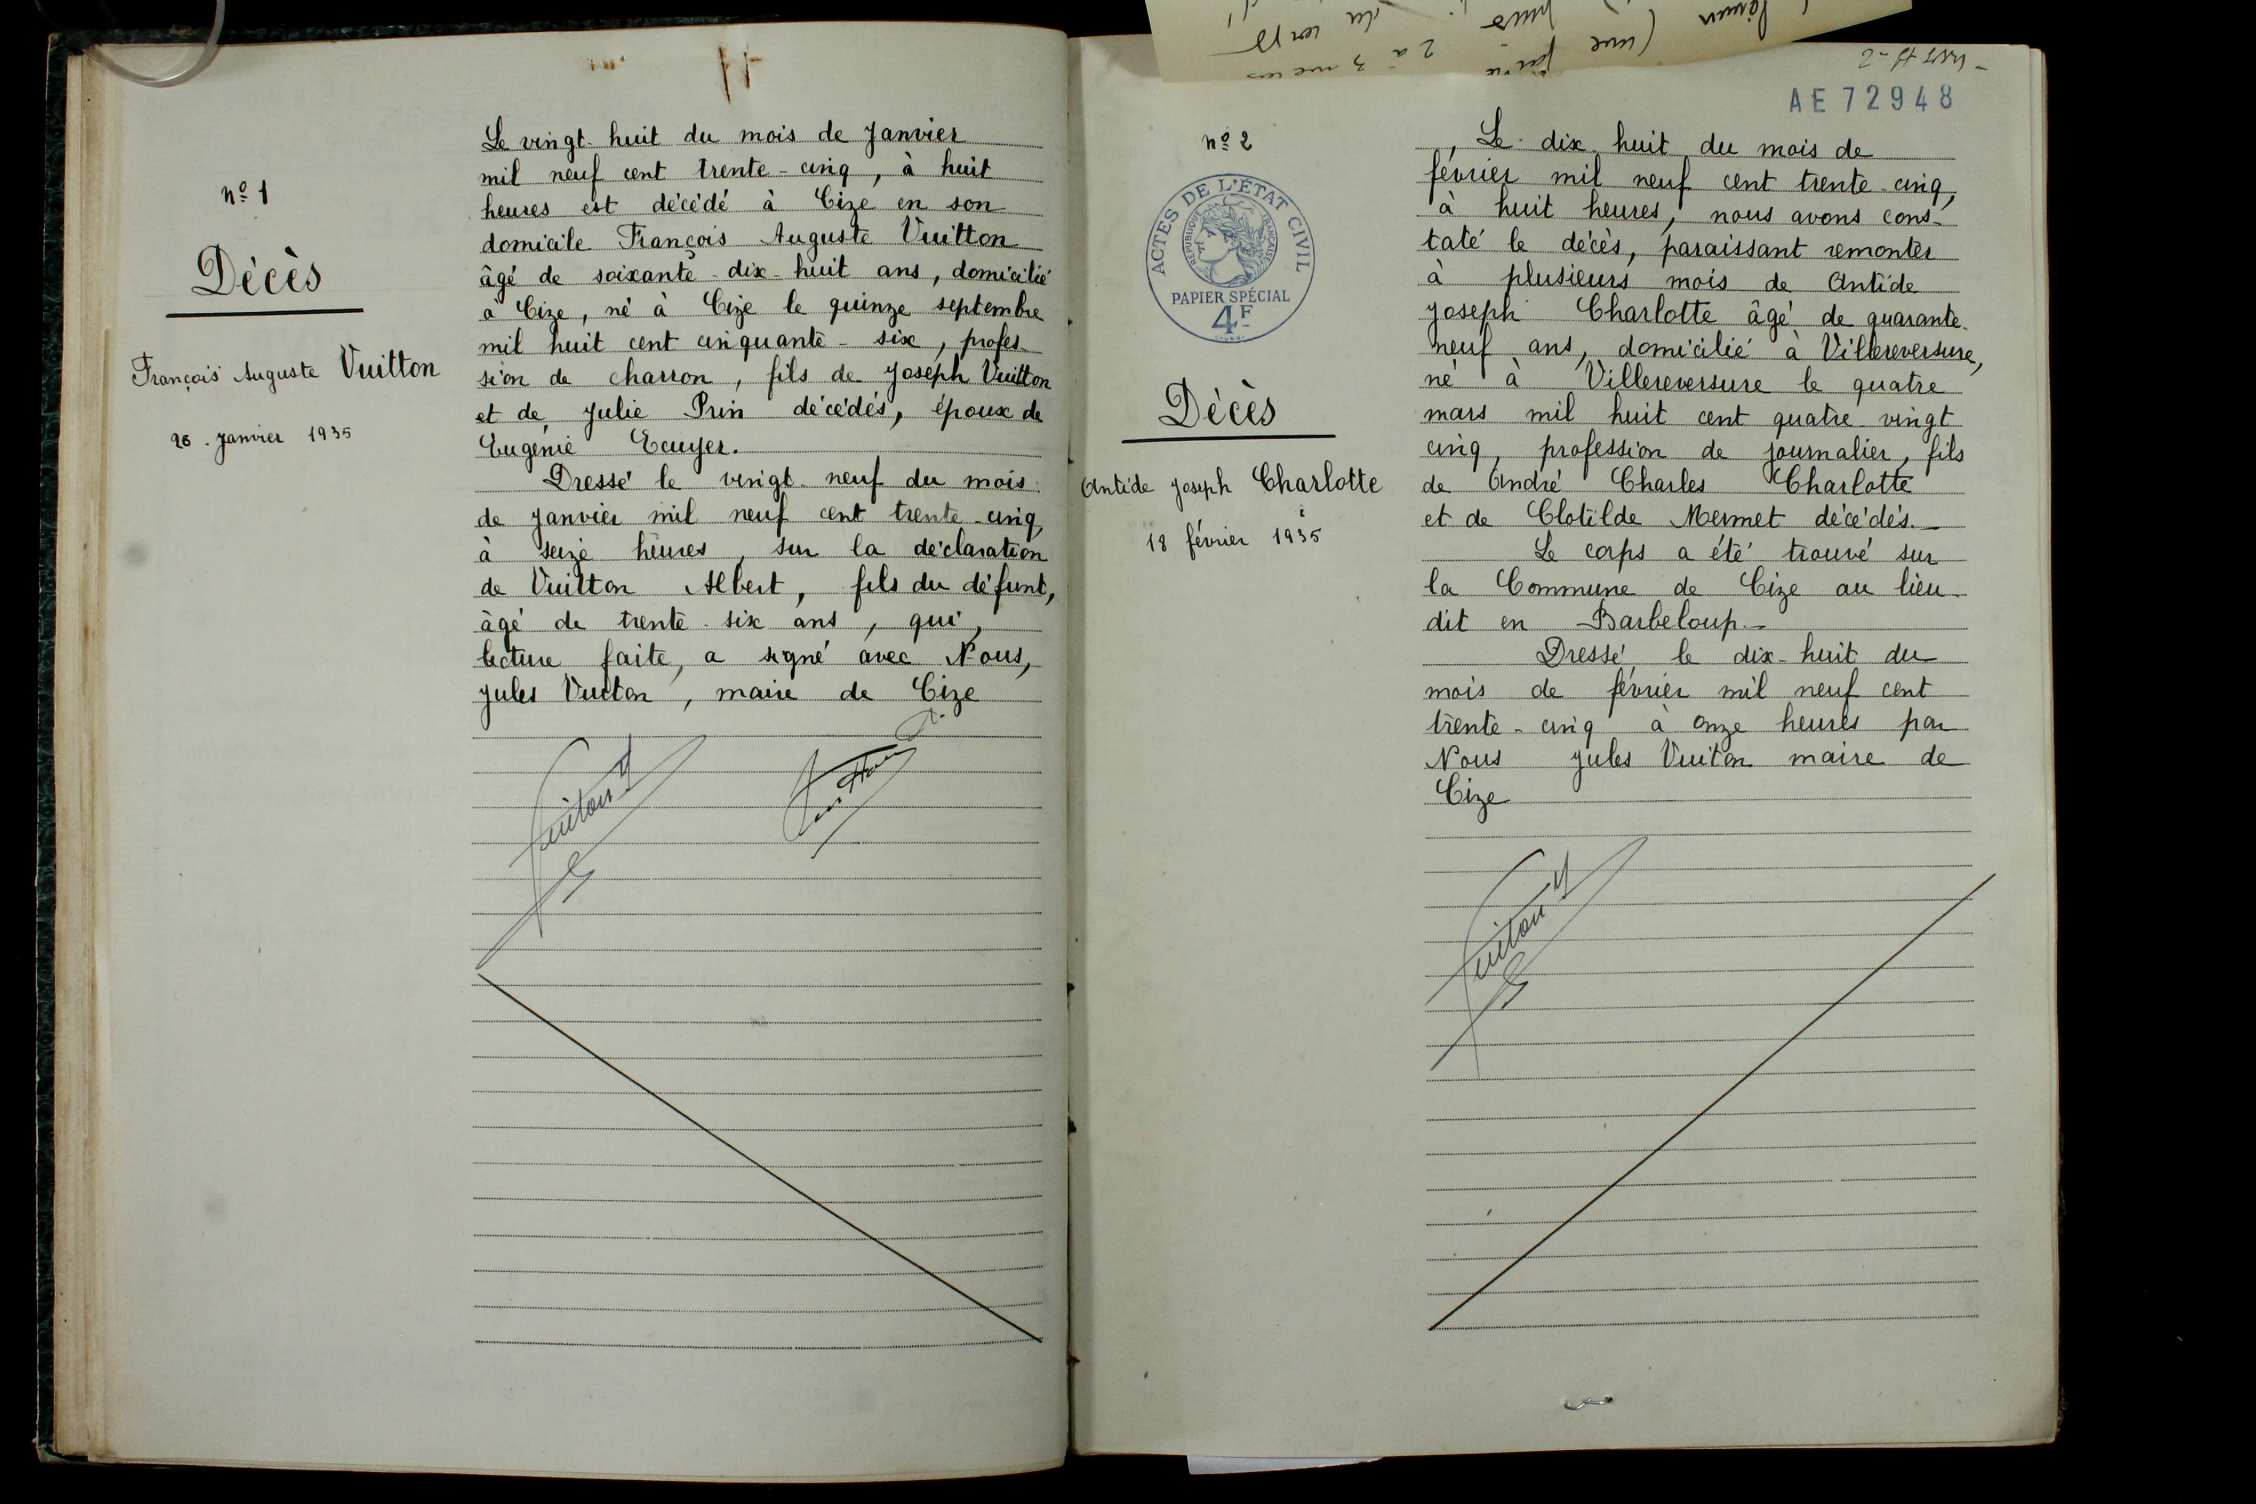 nº 1
Décès
François Auguste Vuitton
28. janvier 1935
Le vingt-huit du mois de janvier
mil neuf cent trente-cinq, à huit
heures est décédé à Cize en son
domicile François Auguste Vuitton
âgé de soixante-dix-huit ans, domicilié
a Cize, né à Cize le quinze septembre
mil huit cent cinquante-six, profes-
sion de charron, fils de Joseph Vuitton
et de Julie Prin décédés, époux de
Eugénie Ecuyer.
Dressé le vingt-neuf du mois
de janvier mil neuf cent trente-cinq,
à seize heures, sur la déclaration
de Vuitton Albert, fils du défunt,
âgé de trente-six ans, qui,
lecture faite, a signé avec Nous,
Jules Vuiton, maire de Cize
Vuiton J
AE 72948
nº 2
ACTES DE L'ÉTAT CIVIL
RÉPUBLIQUE FRANÇAISE
PAPIER SPÉCIAL
4F
Décès
Antide Joseph Charlotte
18 février 1935
Le dix huit du mois de
février mil neuf cent trente-cinq,
à huit heures, nous avons cons-
taté le décès, paraissant remonter
à plusieurs mois de Antide
Joseph Charlotte âgé de quarante-
neuf ans, domicilié à Villereversure,
né à Villereversure le quatre
mars mil huit cent quatre-vingt
cinq, profession de journalier, fils
de André Charles Charlotte
et de Clotilde Mermet décédés.
Le corps a été trouvé sur
la Commune de Cize au lieu-
dit en Barbeloup.
Dressé, le dix-huit du
mois de février mil neuf cent
trente-cinq à onze heures par
Nous Jules Vuiton maire de
Cize
Vuiton J